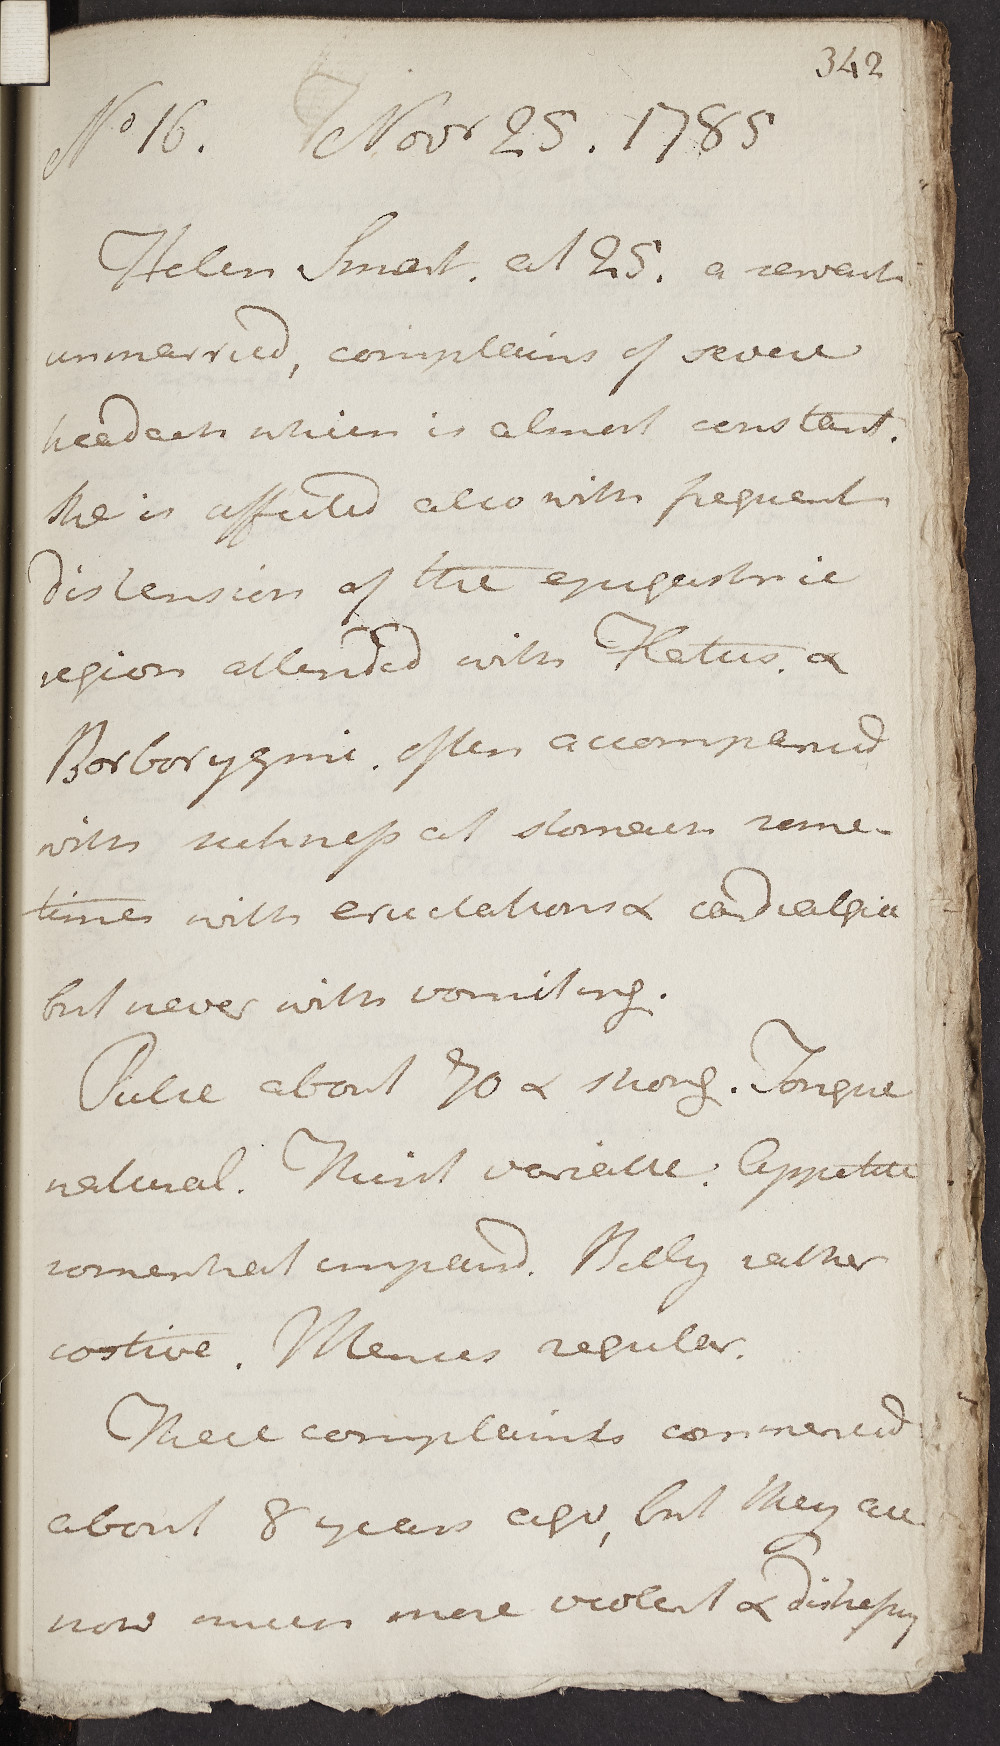 342
No 16. Novr 25. 1785
Helen Smart. æt 25. a servant
unmarried, complains of severe
headach which is almost constant.
She is affected also with frequent
distension of the epigastric
region attended with Flatus. &
Borborygmi. often accompanied
with sickness at stomach some-
times with eructations & cardialgia
but never with vomiting.
Pulse about 70 & strong. Tongue
natural. Thirst variable. Appetite
somewhat impaired. Belly rather
costive. Menses regular.
These complaints commenced
about 8 years ago, but they are
now much more violent & distressing